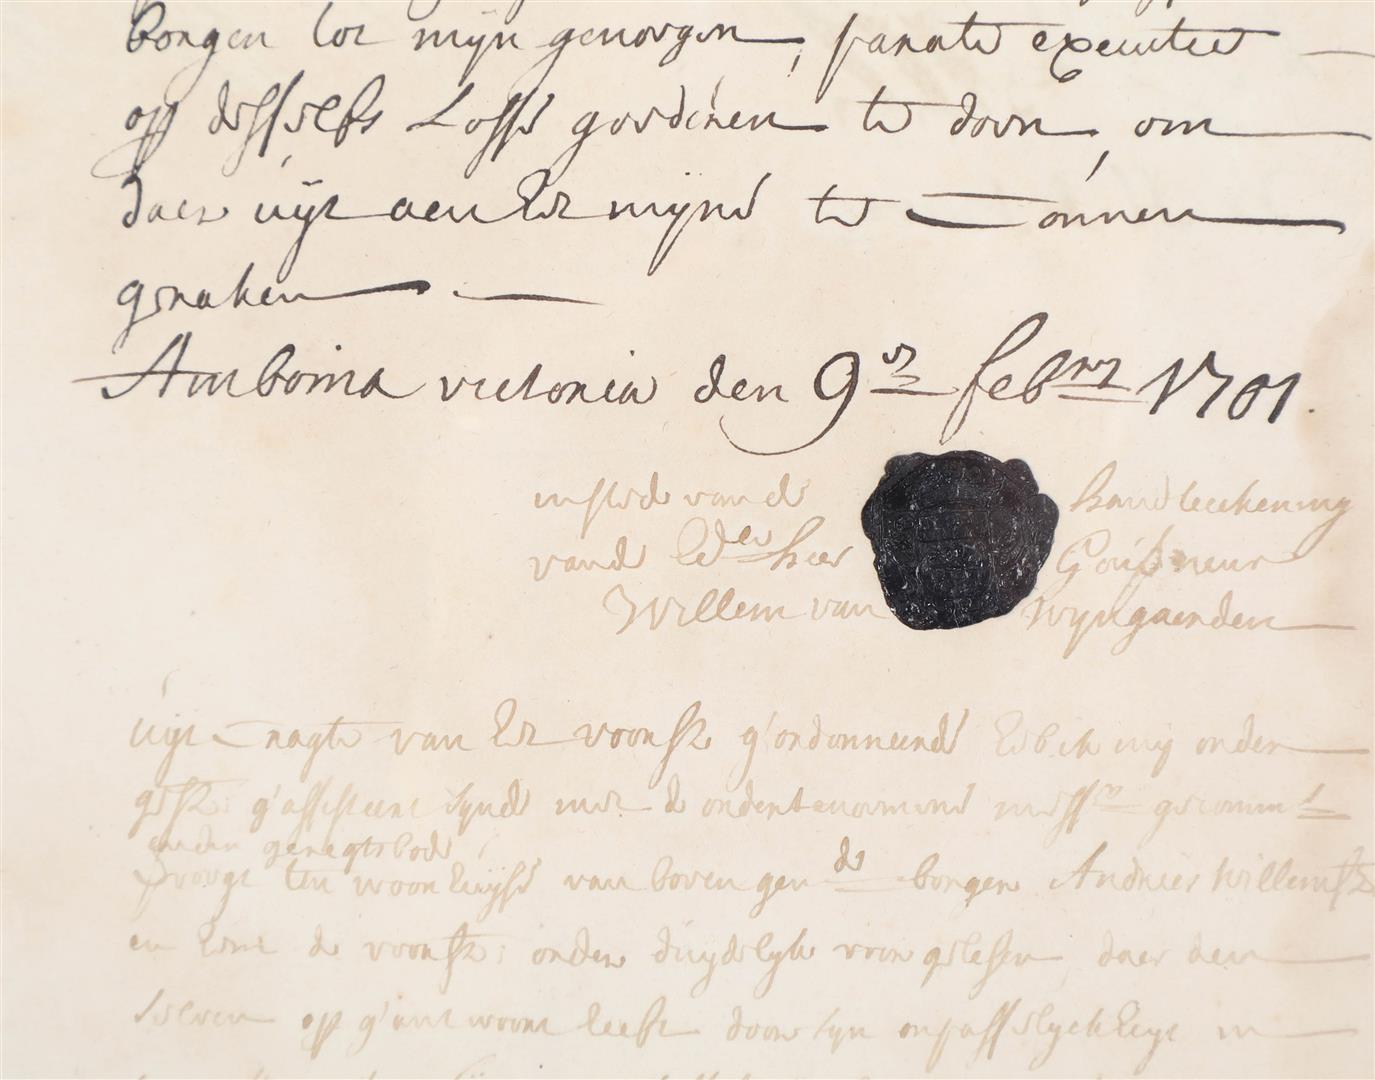 borgen tot mijn genoegen, parate executie
op desselfs Losse goederen te doen, om
daer uijt aen het mijne te Connen
geraken
Amboina victoria den 9er febrrij 1701.
in stede van de handteekening
vande Ede heer Gouverneur
Willem van Wijngaerden
uijt Cragte van het voorsz g'ordonneerde heb ik mij onder
gesz: g'assisteert synde met de ondertenoemene
geregtsbode
ten woon huijse van boven gende borger Andries Willemsz
en hem de voorsz: orden duydelyk voor gelesen, daer den
selven op g'antwoort heeft door syn onpasselyckheyt in